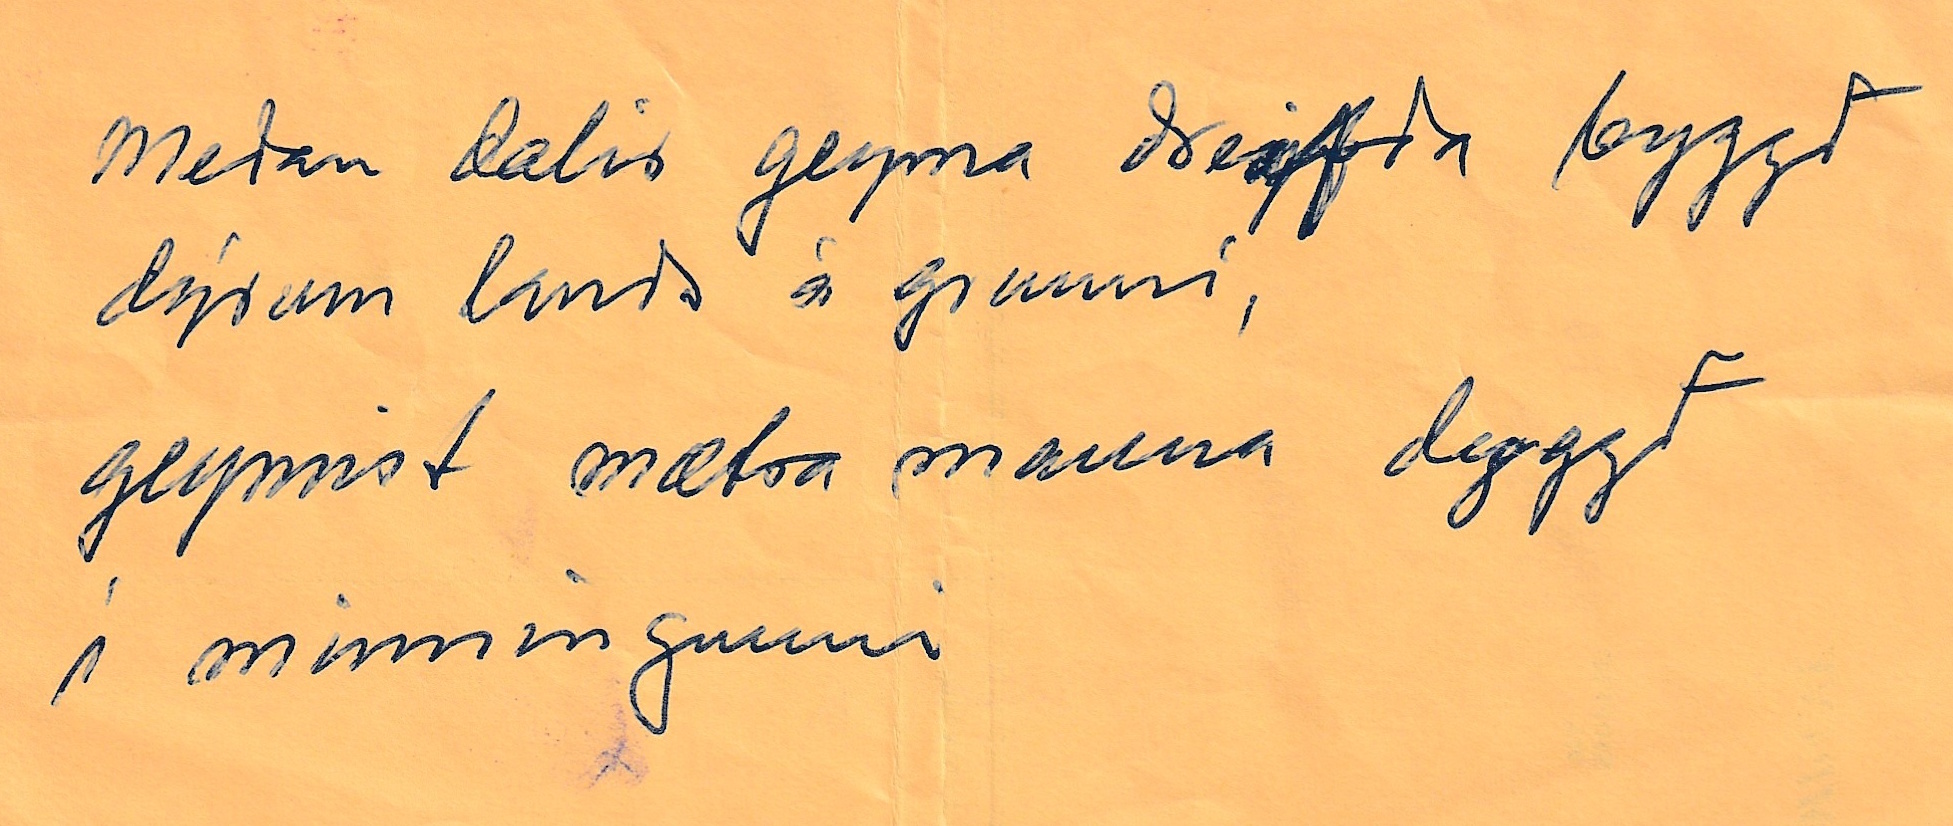 Meðan dalir geyma dreifða byggð
dýrum lands á grunni,
geymist mætra manna dyggð
í minningunni